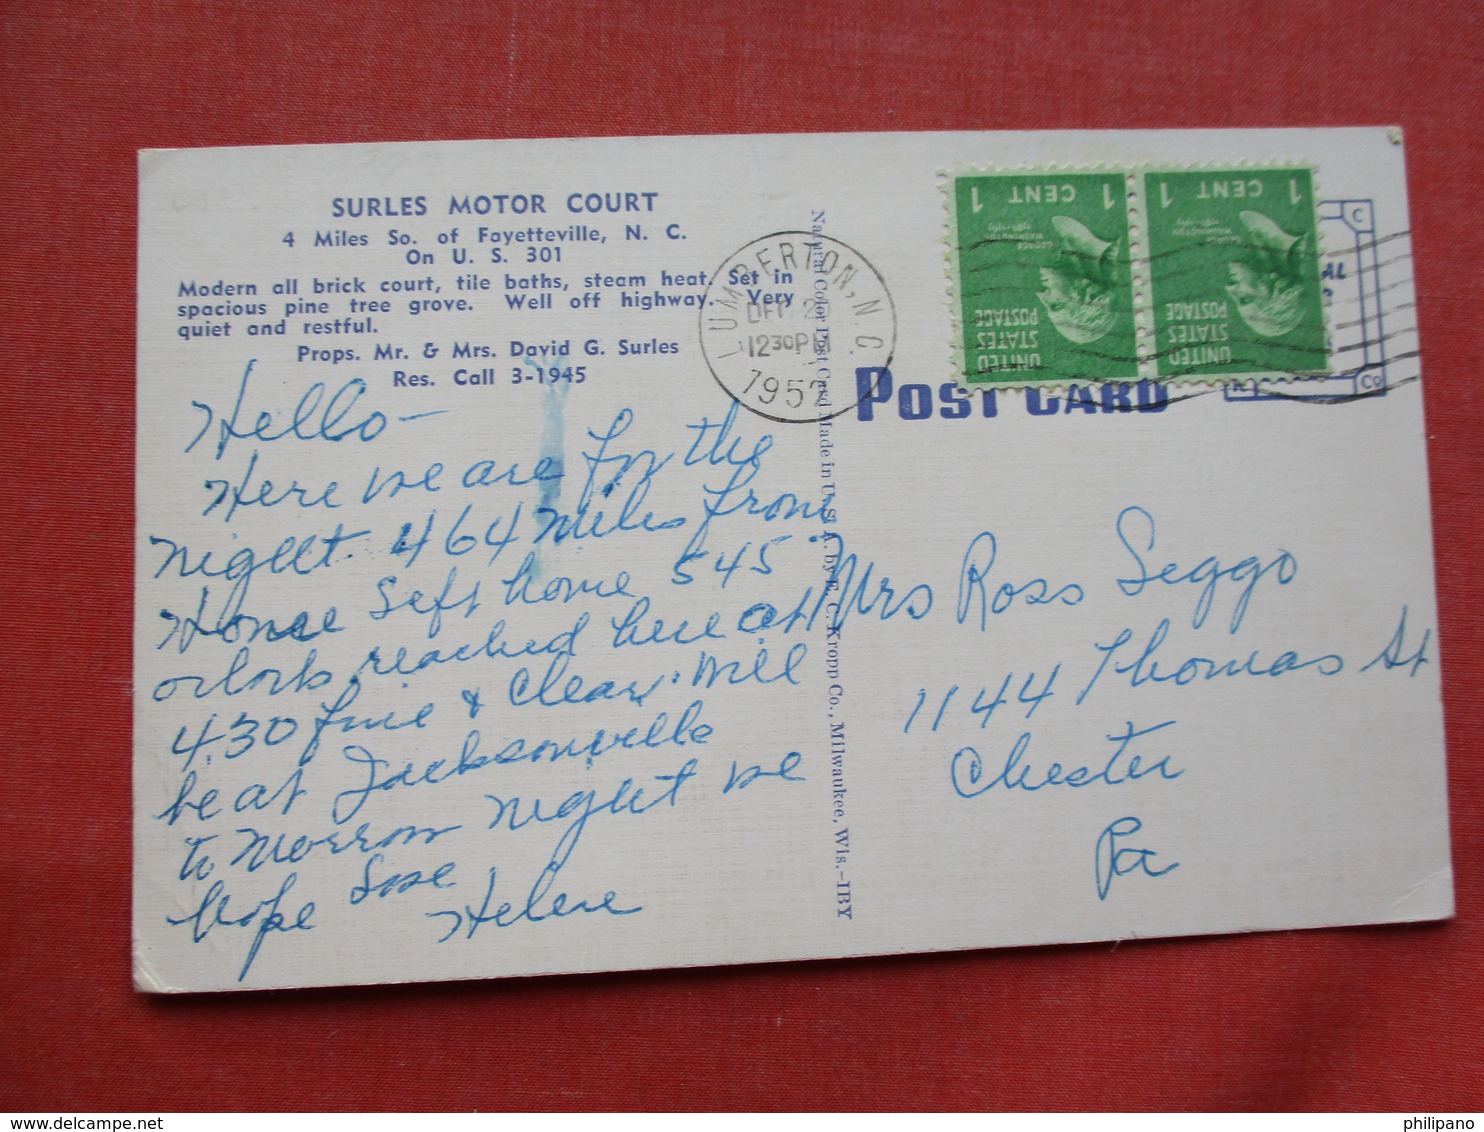 SURLES MOTOR COURT
4 Miles So. of Fayetteville, N. C.
On U. S. 301
Modern all brick court, tile baths, steam heat. Set in
spacious pine tree grove. Well off highway. Very
quiet and restful.
Props. Mr. & Mrs. David G. Surles
Res. Call 3-1945
Hello —
Here we are for the
night. 464 miles from
Home left home 545
oclock reached here at
4.30 fine & clear. Will
be at Jacksonville
to morrow night we
hope
Helene
Natural Color Post Card Made in U. S. A. by E. C. Kropp Co., Milwaukee, Wis.-IBY
LUMBERTON, N.C.
DEC 2
12 30 PM
1957
1 CENT 1
GEORGE
WASHINGTON
UNITED
STATES
POSTAGE
1 CENT 1
GEORGE
WASHINGTON
UNITED
STATES
POSTAGE
C
Co
POST CARD
Mrs Ross Seggo
1144 Thomas St
Chester
Pa
philipano